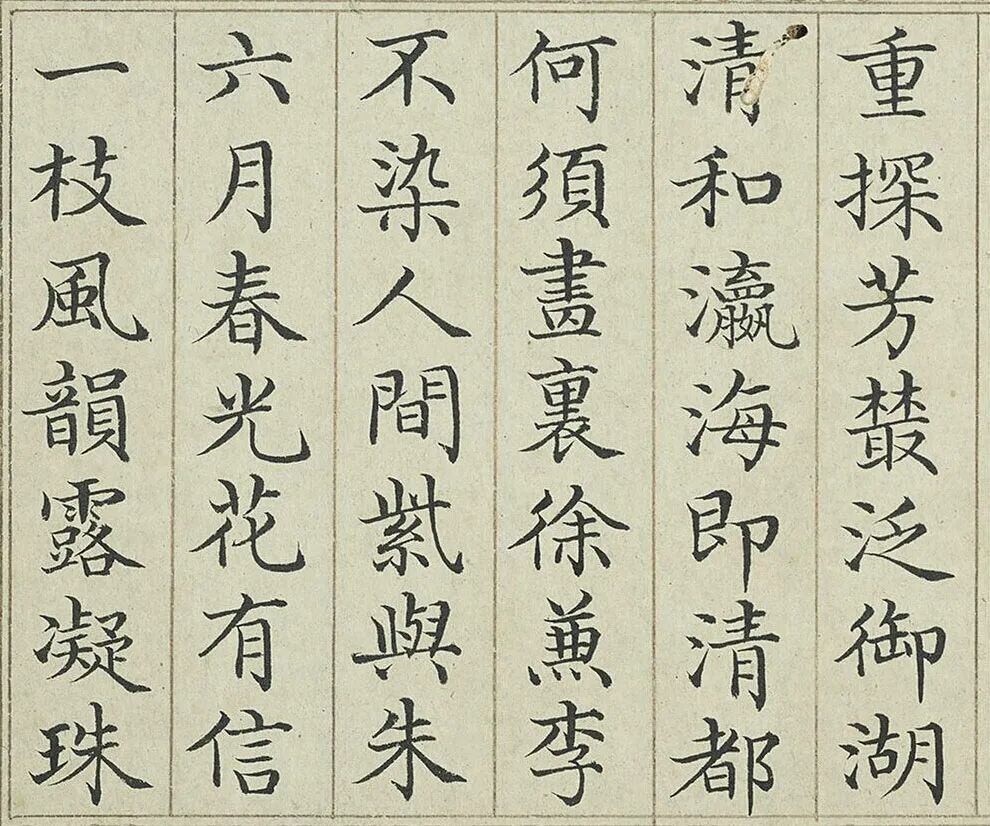 重探芳蕞泛御湖
清和瀛海即清都
何須畫裏徐兼李
不染人間紫與朱
六月春光花有信
一枝風韻露凝珠